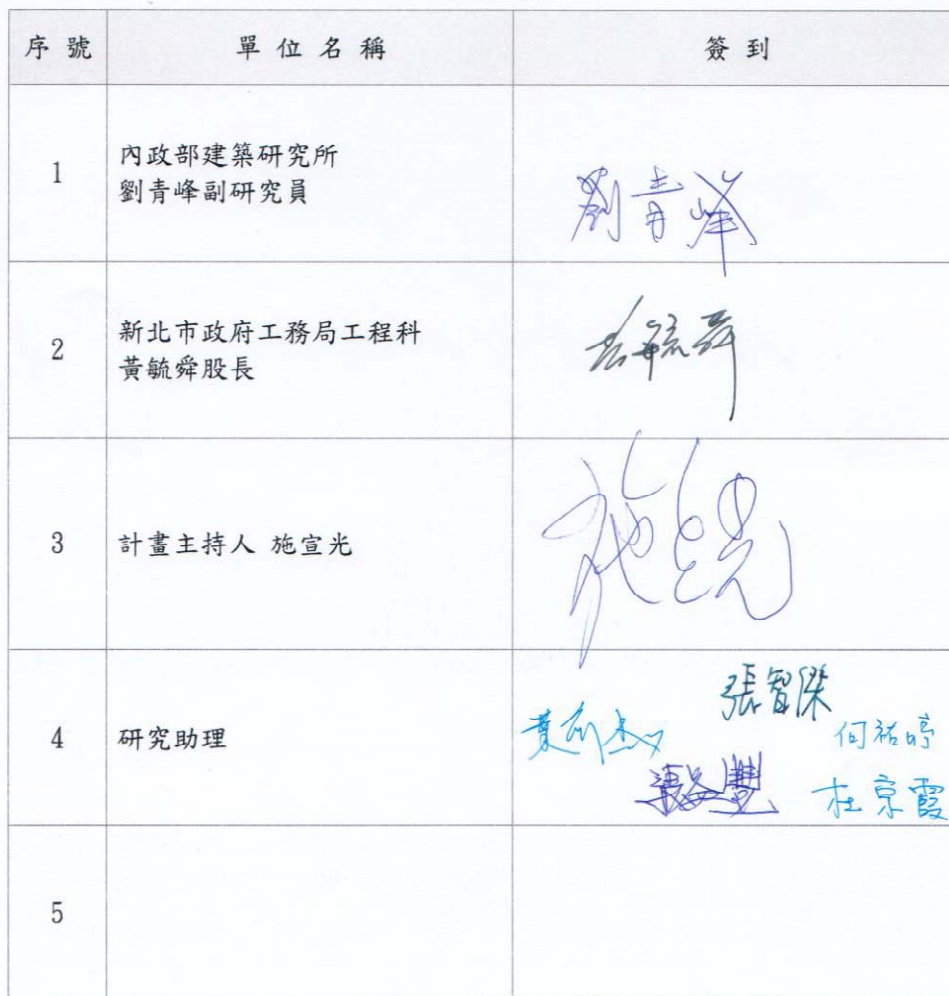 序號 單位名稱 簽到
1 內政部建築研究所
劉青峰副研究員
劉青峰
2 新北市政府工務局工程科
黃毓舜股長
黃毓舜
3 計畫主持人 施宣光
施宣光
4 研究助理
張智傑
何祐婷
杜京霞
5